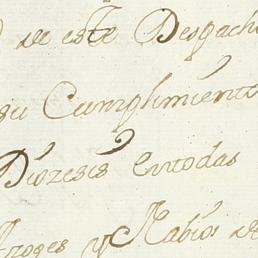 de este Despacho
su Cumplimiento
Diozesis entodas
y Rabios de